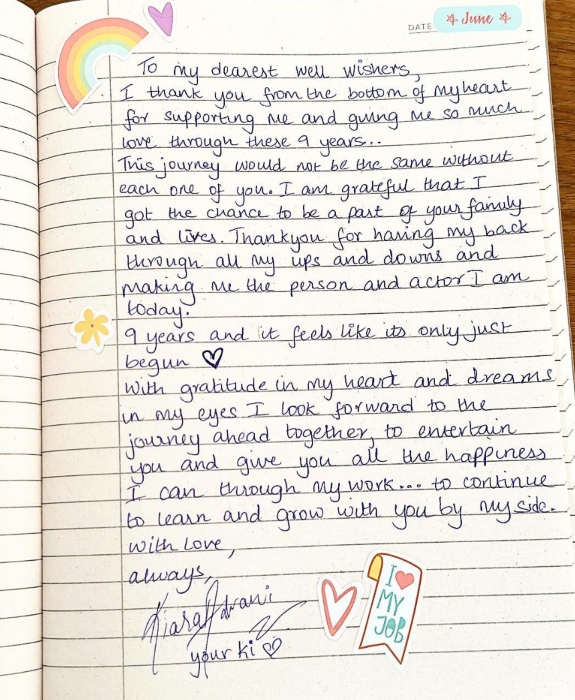 DATE
June
To my dearest well wishers,
I thank you from the bottom of my heart
for supporting me and giving me so much
love through these 9 years...
This journey would not be the same without
each one of you. I am grateful that I
got the chance to be a part of your family
and lives. Thankyou for having my back
through all my ups and downs and
making me the person and actor I am
today.
9 years and it feels like its only just
begun ♡
With gratitude in my heart and dreams
in my eyes I look forward to the
journey ahead together, to entertain
you and give you all the happiness
I can through my work... to continue
to learn and grow with you by my side.
with love,
always,
Kiara Advani
your ki ♡
I ♥
MY
JOB